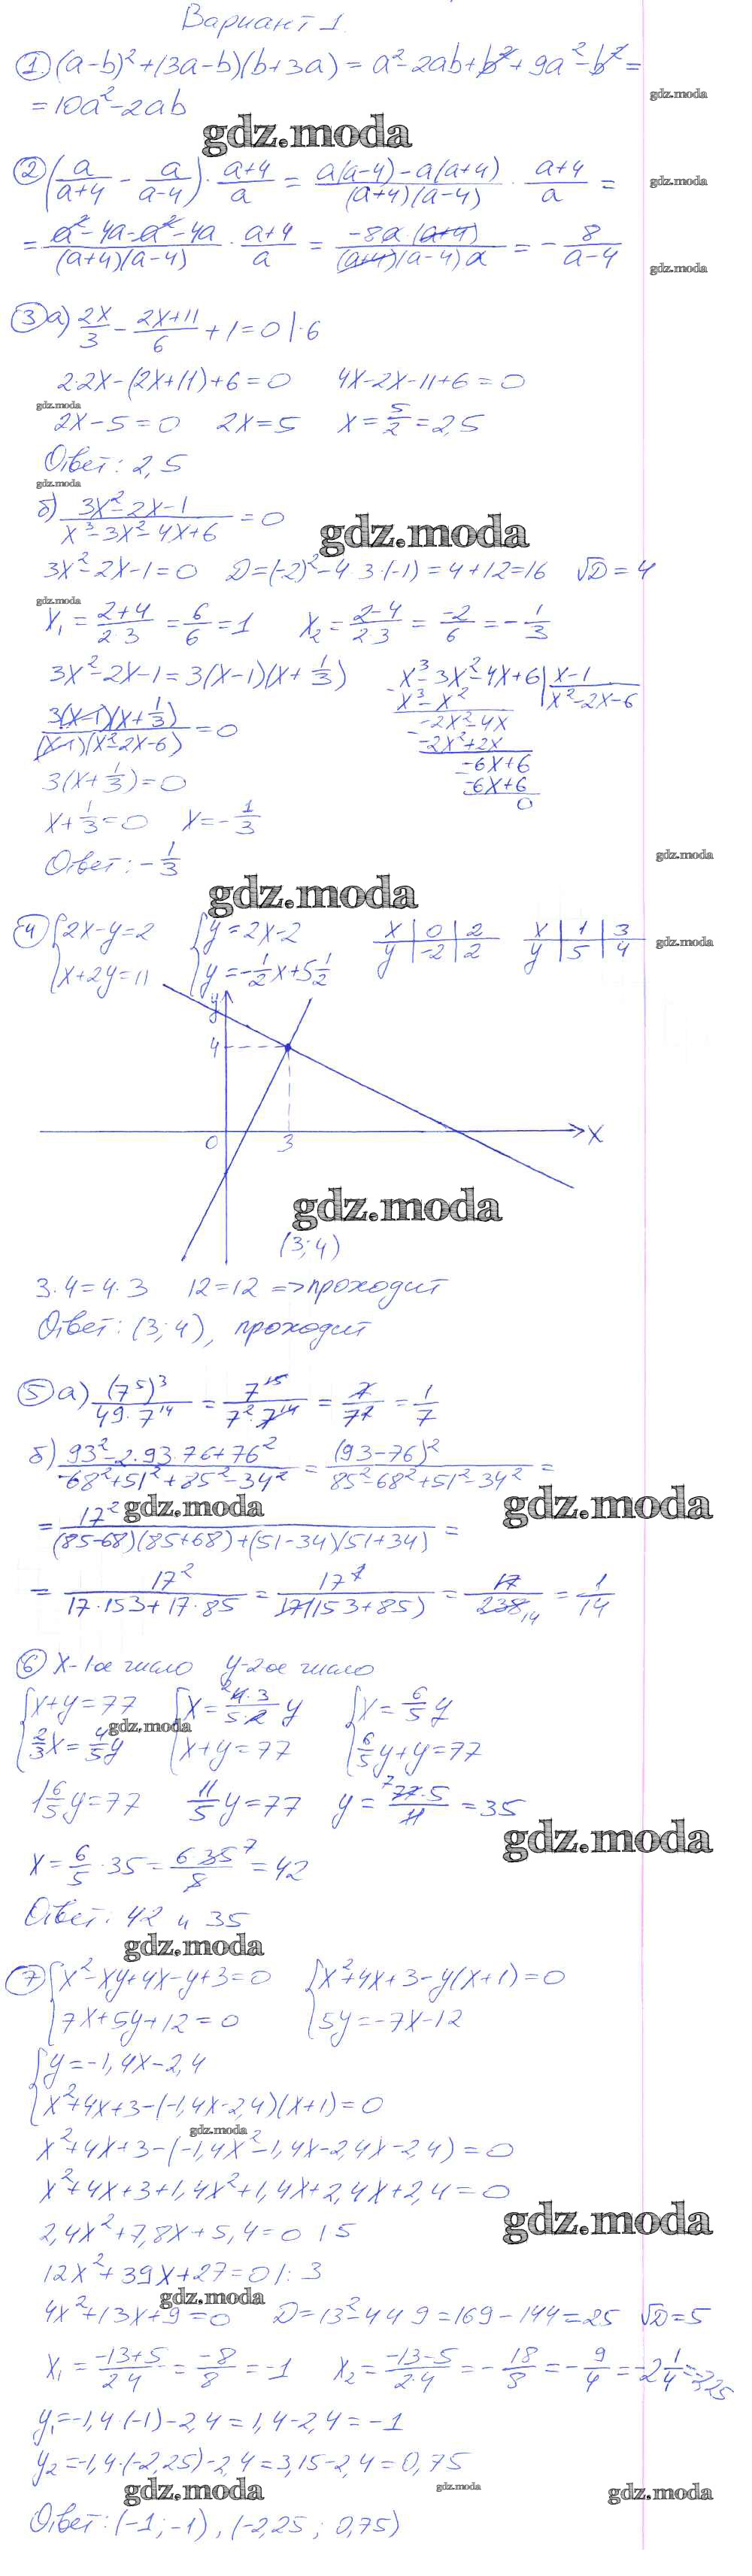 Вариант 1.
① (a-b)² + (3a-b)(b+3a) = a² - 2ab + b² + 9a² - b² =
gdz.moda
= 10a² - 2ab
gdz.moda
② (a/(a+4) - a/(a-4)) · (a+4)/a = (a(a-4) - a(a+4))/((a+4)(a-4)) · (a+4)/a =
gdz.moda
= (a² - 4a - a² - 4a)/((a+4)(a-4)) · (a+4)/a = (-8a·(a+4))/((a+4)(a-4)a) = - 8/(a-4)
gdz.moda
③ а) 2x/3 - (2x+11)/6 + 1 = 0 |·6
2·2x - (2x+11) + 6 = 0   4x - 2x - 11 + 6 = 0
gdz.moda
2x - 5 = 0   2x = 5   x = 5/2 = 2,5
Ответ: 2,5
gdz.moda
б) (3x² - 2x - 1)/(x³ - 3x² - 4x + 6) = 0
gdz.moda
3x² - 2x - 1 = 0   D = (-2)² - 4·3·(-1) = 4 + 12 = 16   √D = 4
gdz.moda
x₁ = (2+4)/(2·3) = 6/6 = 1   x₂ = (2-4)/(2·3) = -2/6 = - 1/3
3x² - 2x - 1 = 3(x-1)(x + 1/3)   x³ - 3x² - 4x + 6 | x-1
x³ - x²   x² - 2x - 6
3(x-1)(x + 1/3)/((x-1)(x² - 2x - 6)) = 0   -2x² - 4x
-2x² + 2x
3(x + 1/3) = 0   -6x + 6
-6x + 6
0
x + 1/3 = 0   x = - 1/3
Ответ: - 1/3
gdz.moda
gdz.moda
④ { 2x - y = 2   { y = 2x - 2   x | 0 | 2   x | 1 | 3
gdz.moda
{ x + 2y = 11   { y = - 1/2 x + 5 1/2   y | -2 | 2   y | 5 | 4
y
4
0 3 x
gdz.moda
(3; 4)
3·4 = 4·3   12 = 12 => проходит
Ответ: (3; 4), проходит
⑤ а) (7⁵)³/(49·7¹⁴) = 7¹⁵/(7²·7¹⁴) = 7/7² = 1/7
б) (93² - 2·93·76 + 76²)/(-68² + 51² + 85² - 34²) = (93-76)²/(85² - 68² + 51² - 34²) =
gdz.moda
gdz.moda
= 17²/((85-68)(85+68) + (51-34)(51+34)) =
= 17²/(17·153 + 17·85) = 17²/(17(153+85)) = 17/238 14 = 1/14
⑥ x - 1ое число   y - 2ое число
{ x + y = 77   { x = (4·3)/(5·2) y   { x = 6/5 y
gdz.moda
{ 2/3 x = 4/5 y   { x + y = 77   { 6/5 y + y = 77
1 6/5 y = 77   11/5 y = 77   y = (77·5)/11 = 35
gdz.moda
x = 6/5 · 35 = (6·35)/5 = 42
Ответ: 42 и 35
gdz.moda
⑦ { x² - xy + 4x - y + 3 = 0   { x² + 4x + 3 - y(x+1) = 0
{ 7x + 5y + 12 = 0   { 5y = -7x - 12
{ y = -1,4x - 2,4
{ x² + 4x + 3 - (-1,4x - 2,4)(x+1) = 0
gdz.moda
x² + 4x + 3 - (-1,4x² - 1,4x - 2,4x - 2,4) = 0
x² + 4x + 3 + 1,4x² + 1,4x + 2,4x + 2,4 = 0
gdz.moda
2,4x² + 7,8x + 5,4 = 0 |·5
12x² + 39x + 27 = 0 |: 3
gdz.moda
4x² + 13x + 9 = 0   D = 13² - 4·4·9 = 169 - 144 = 25   √D = 5
x₁ = (-13+5)/(2·4) = -8/8 = -1   x₂ = (-13-5)/(2·4) = - 18/8 = - 9/4 = -2 1/4 = -2,25
y₁ = -1,4·(-1) - 2,4 = 1,4 - 2,4 = -1
y₂ = -1,4·(-2,25) - 2,4 = 3,15 - 2,4 = 0,75
gdz.moda
gdz.moda
gdz.moda
Ответ: (-1; -1), (-2,25; 0,75)